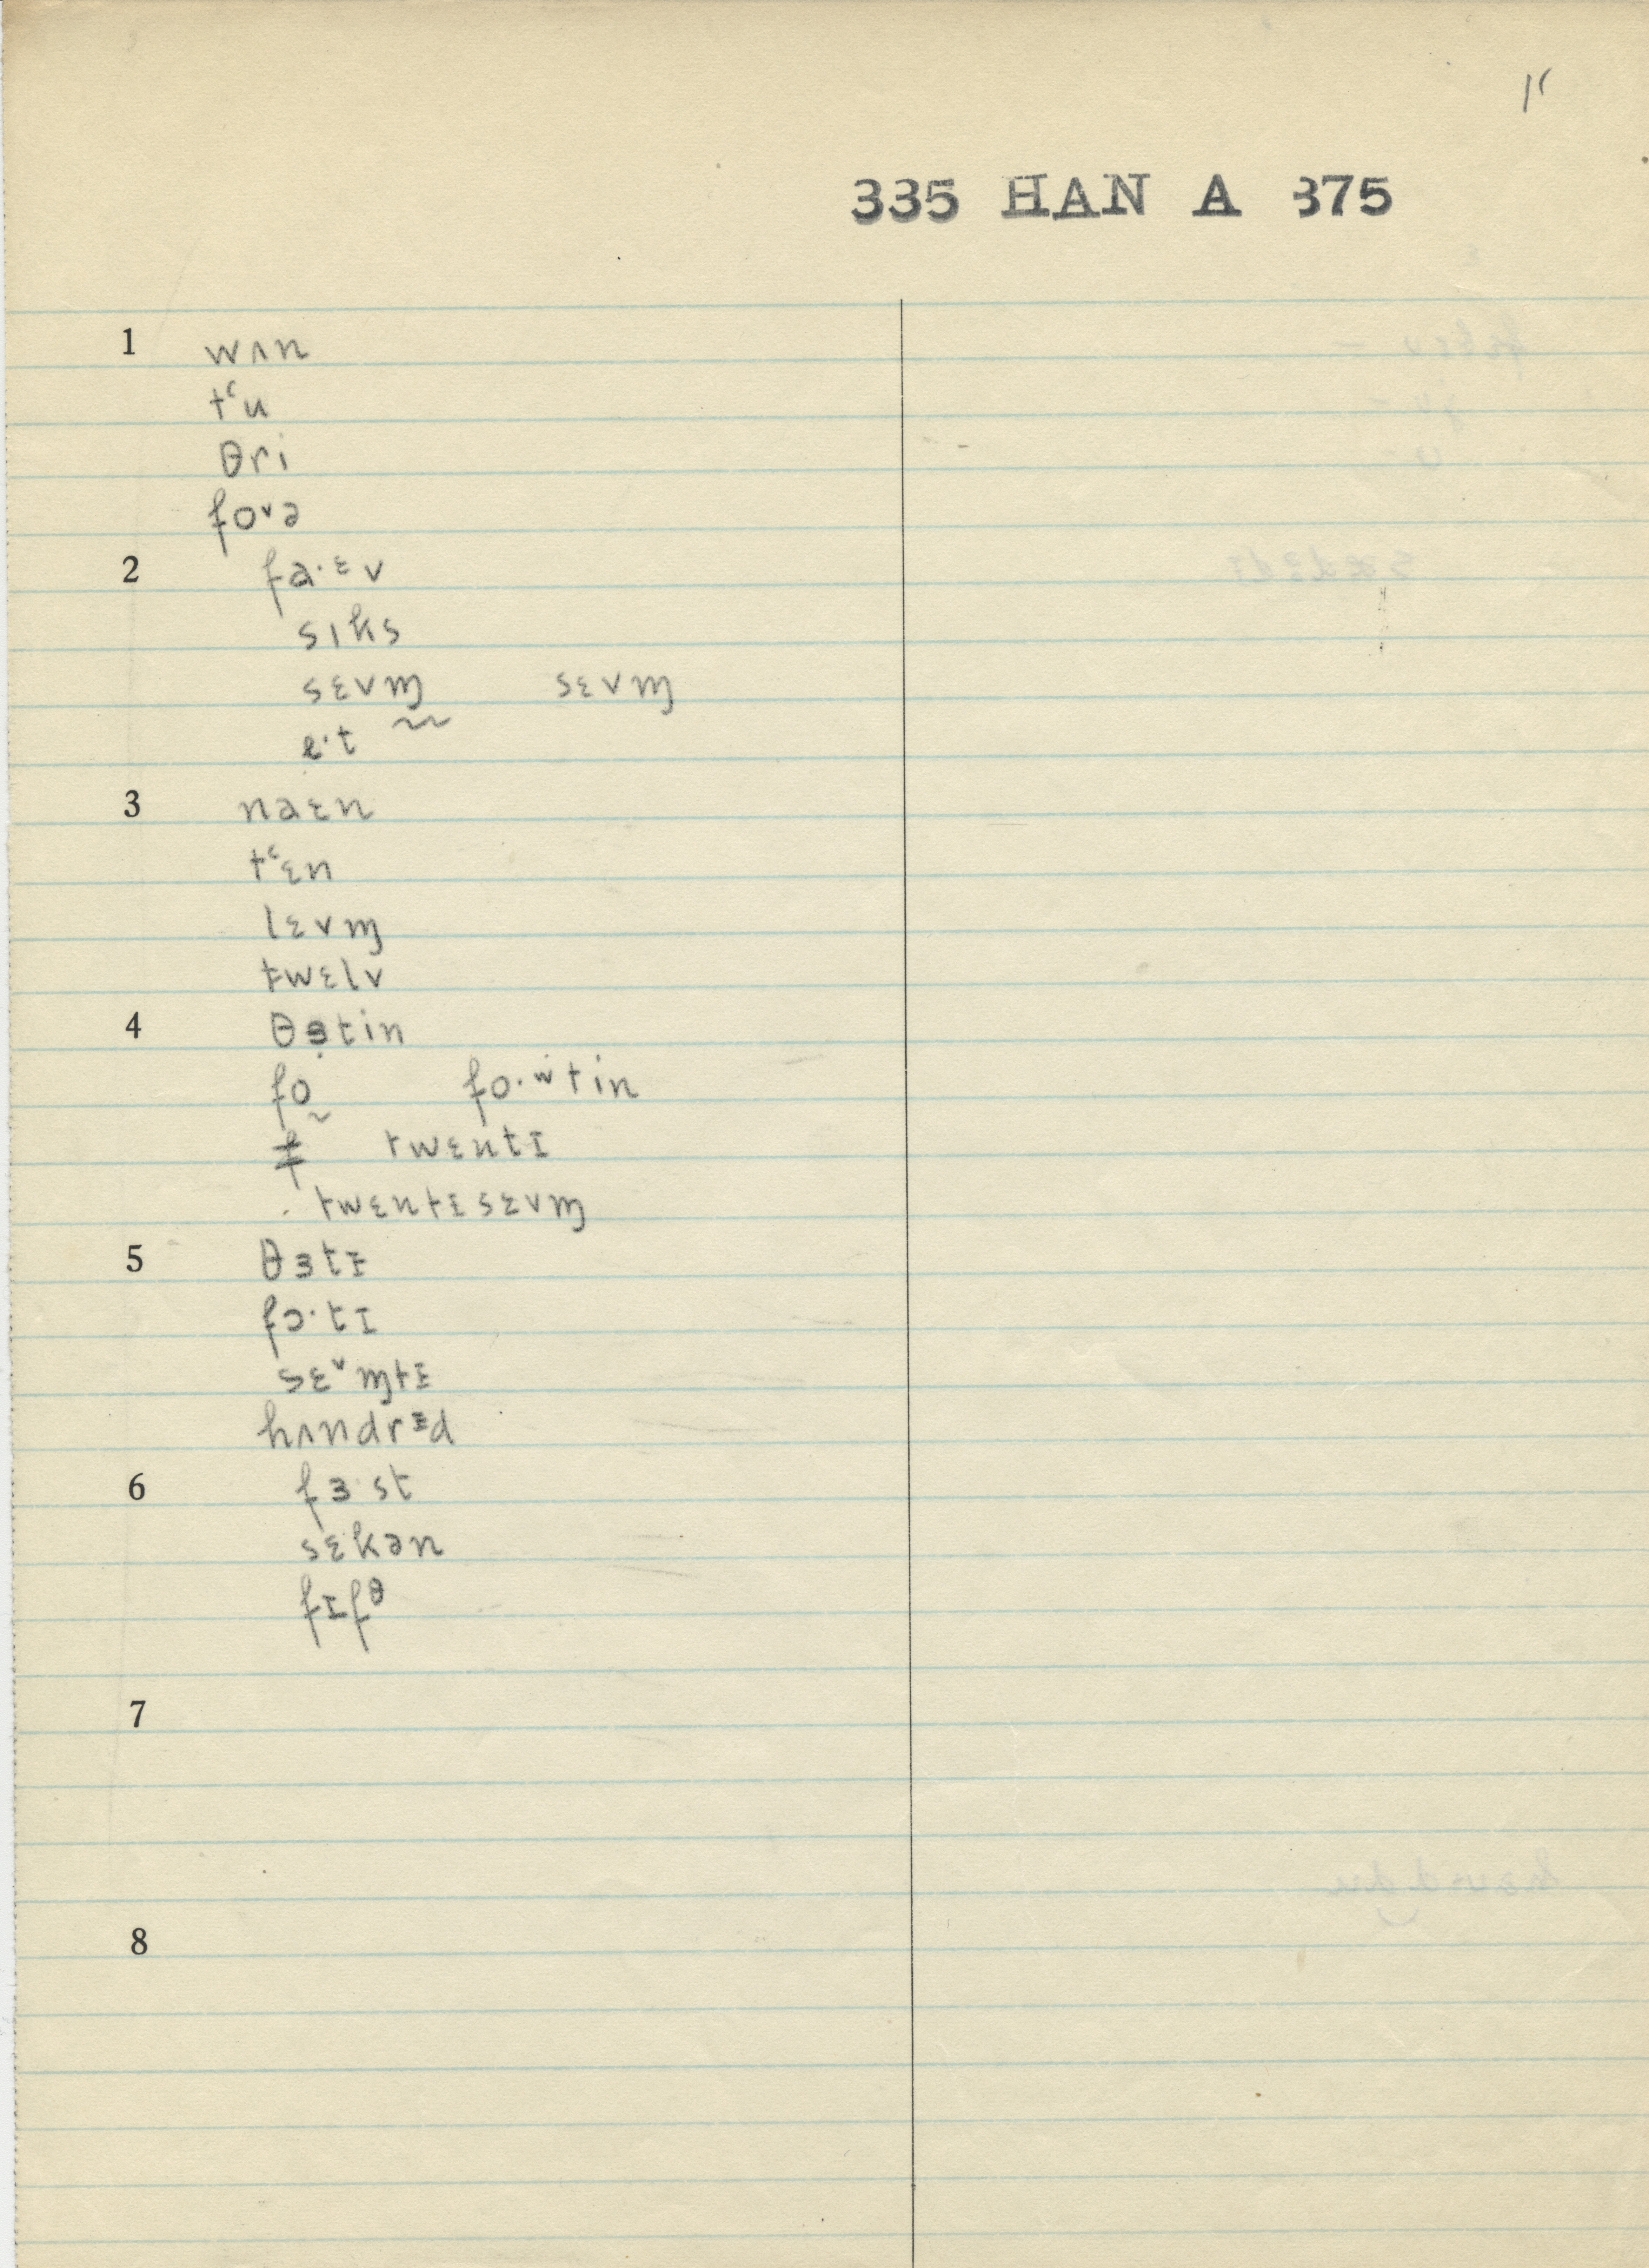 335 HAN A 375
1 wʌn
tʻu
θri
foᵛə
2 fa·ᵋv
sɪks
sɛvɱ sɛvɱ
e·t
3 naɛn
tʻɛn
lɛvɱ
twɛlv
4 θɜtin
fo fo·ʷtin
twɛntɪ
twɛntɪsɛvɱ
5 θɜtɪ
fɔ·tɪ
sɛᵛɱtɪ
hʌndrᵻd
6 fɜ·st
sɛkən
fɪfᶿ
7
8